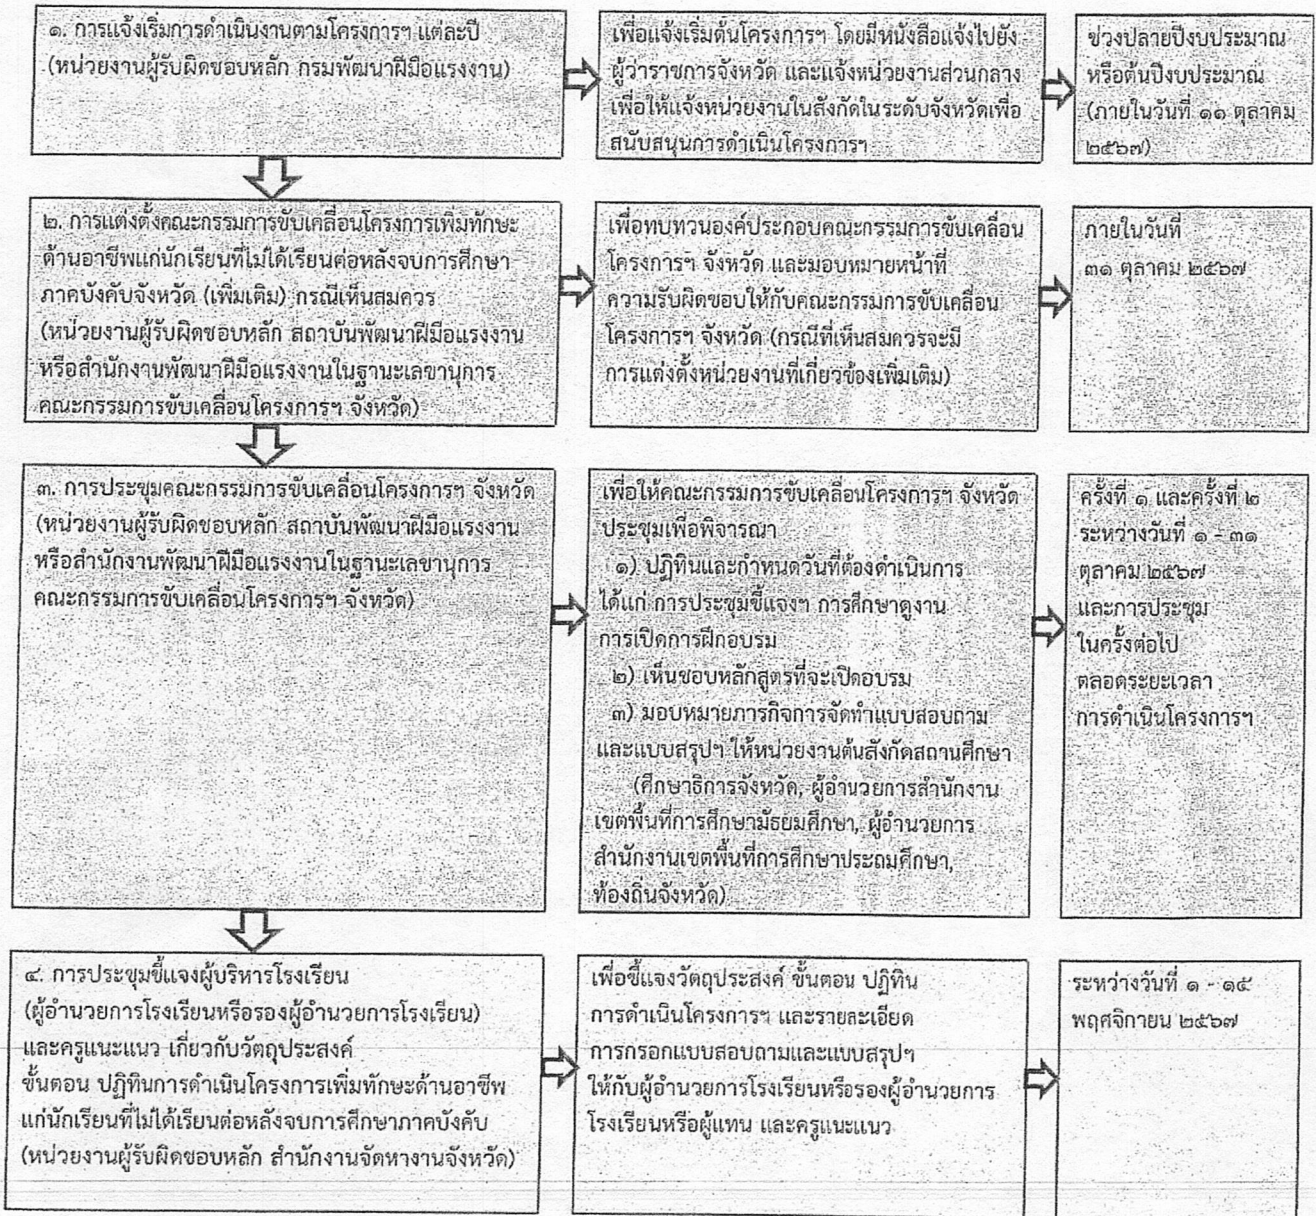 ๑. การแจ้งเริ่มการดำเนินงานตามโครงการฯ แต่ละปี
(หน่วยงานผู้รับผิดชอบหลัก กรมพัฒนาฝีมือแรงงาน)
เพื่อแจ้งเริ่มต้นโครงการฯ โดยมีหนังสือแจ้งไปยัง
ผู้ว่าราชการจังหวัด และแจ้งหน่วยงานส่วนกลาง
เพื่อให้แจ้งหน่วยงานในสังกัดในระดับจังหวัดเพื่อ
สนับสนุนการดำเนินโครงการฯ
ช่วงปลายปีงบประมาณ
หรือต้นปีงบประมาณ
(ภายในวันที่ ๑๑ ตุลาคม
๒๕๖๗)
๒. การแต่งตั้งคณะกรรมการขับเคลื่อนโครงการเพิ่มทักษะ
ด้านอาชีพแก่นักเรียนที่ไม่ได้เรียนต่อหลังจบการศึกษา
ภาคบังคับจังหวัด (เพิ่มเติม) กรณีเห็นสมควร
(หน่วยงานผู้รับผิดชอบหลัก สถาบันพัฒนาฝีมือแรงงาน
หรือสำนักงานพัฒนาฝีมือแรงงานในฐานะเลขานุการ
คณะกรรมการขับเคลื่อนโครงการฯ จังหวัด)
เพื่อทบทวนองค์ประกอบคณะกรรมการขับเคลื่อน
โครงการฯ จังหวัด และมอบหมายหน้าที่
ความรับผิดชอบให้กับคณะกรรมการขับเคลื่อน
โครงการฯ จังหวัด (กรณีที่เห็นสมควรจะมี
การแต่งตั้งหน่วยงานที่เกี่ยวข้องเพิ่มเติม)
ภายในวันที่
๓๑ ตุลาคม ๒๕๖๗
๓. การประชุมคณะกรรมการขับเคลื่อนโครงการฯ จังหวัด
(หน่วยงานผู้รับผิดชอบหลัก สถาบันพัฒนาฝีมือแรงงาน
หรือสำนักงานพัฒนาฝีมือแรงงานในฐานะเลขานุการ
คณะกรรมการขับเคลื่อนโครงการฯ จังหวัด)
เพื่อให้คณะกรรมการขับเคลื่อนโครงการฯ จังหวัด
ประชุมเพื่อพิจารณา
๑) ปฏิทินและกำหนดวันที่ต้องดำเนินการ
ได้แก่ การประชุมชี้แจงฯ การศึกษาดูงาน
การเปิดการฝึกอบรม
๒) เห็นชอบหลักสูตรที่จะเปิดอบรม
๓) มอบหมายภารกิจการจัดทำแบบสอบถาม
และแบบสรุปฯ ให้หน่วยงานต้นสังกัดสถานศึกษา
(ศึกษาธิการจังหวัด, ผู้อำนวยการสำนักงาน
เขตพื้นที่การศึกษามัธยมศึกษา, ผู้อำนวยการ
สำนักงานเขตพื้นที่การศึกษาประถมศึกษา,
ท้องถิ่นจังหวัด)
ครั้งที่ ๑ และครั้งที่ ๒
ระหว่างวันที่ ๑ - ๓๑
ตุลาคม ๒๕๖๗
และการประชุม
ในครั้งต่อไป
ตลอดระยะเวลา
การดำเนินโครงการฯ
๔. การประชุมชี้แจงผู้บริหารโรงเรียน
(ผู้อำนวยการโรงเรียนหรือรองผู้อำนวยการโรงเรียน)
และครูแนะแนว เกี่ยวกับวัตถุประสงค์
ขั้นตอน ปฏิทินการดำเนินโครงการเพิ่มทักษะด้านอาชีพ
แก่นักเรียนที่ไม่ได้เรียนต่อหลังจบการศึกษาภาคบังคับ
(หน่วยงานผู้รับผิดชอบหลัก สำนักงานจัดหางานจังหวัด)
เพื่อชี้แจงวัตถุประสงค์ ขั้นตอน ปฏิทิน
การดำเนินโครงการฯ และรายละเอียด
การกรอกแบบสอบถามและแบบสรุปฯ
ให้กับผู้อำนวยการโรงเรียนหรือรองผู้อำนวยการ
โรงเรียนหรือผู้แทน และครูแนะแนว
ระหว่างวันที่ ๑ - ๑๕
พฤศจิกายน ๒๕๖๗